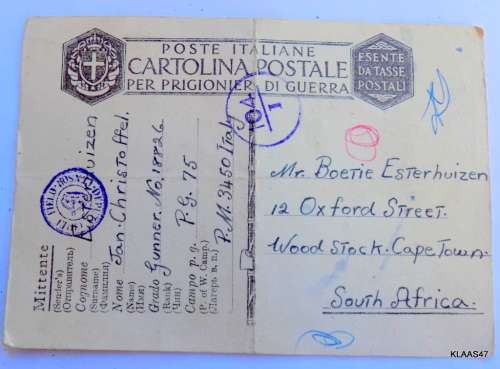 POSTE ITALIANE
CARTOLINA POSTALE
PER PRIGIONIERI DI GUERRA
ESENTE
DA TASSE
POSTALI
Mittente
(Sender's)
(Отправитель)
Cognome
(Surname)
(Фамилия)
Nome Jan. Christoffel.
(Name)
(Имя)
Grado Gunner. No. 18826
(Rank)
(Чин)
Campo p. g. P.G. 75
(P. of W. Camp.)
(Лагерь в. п.)
P.M. 3450 Italy
Mr. Boetie Esterhuizen
12 Oxford Street.
Wood Stock. Cape Town.
South Africa.
KLAAS47